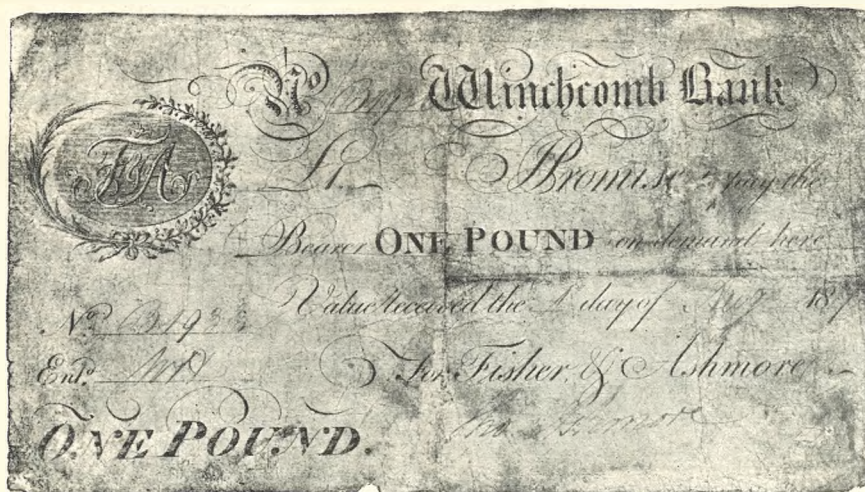 No Winchcomb Bank
F&A
£1. I Promise to pay the
Bearer ONE POUND on demand here
Value received the 1 day of 18
No B
Entd.
For Fisher & Ashmore
ONE POUND.